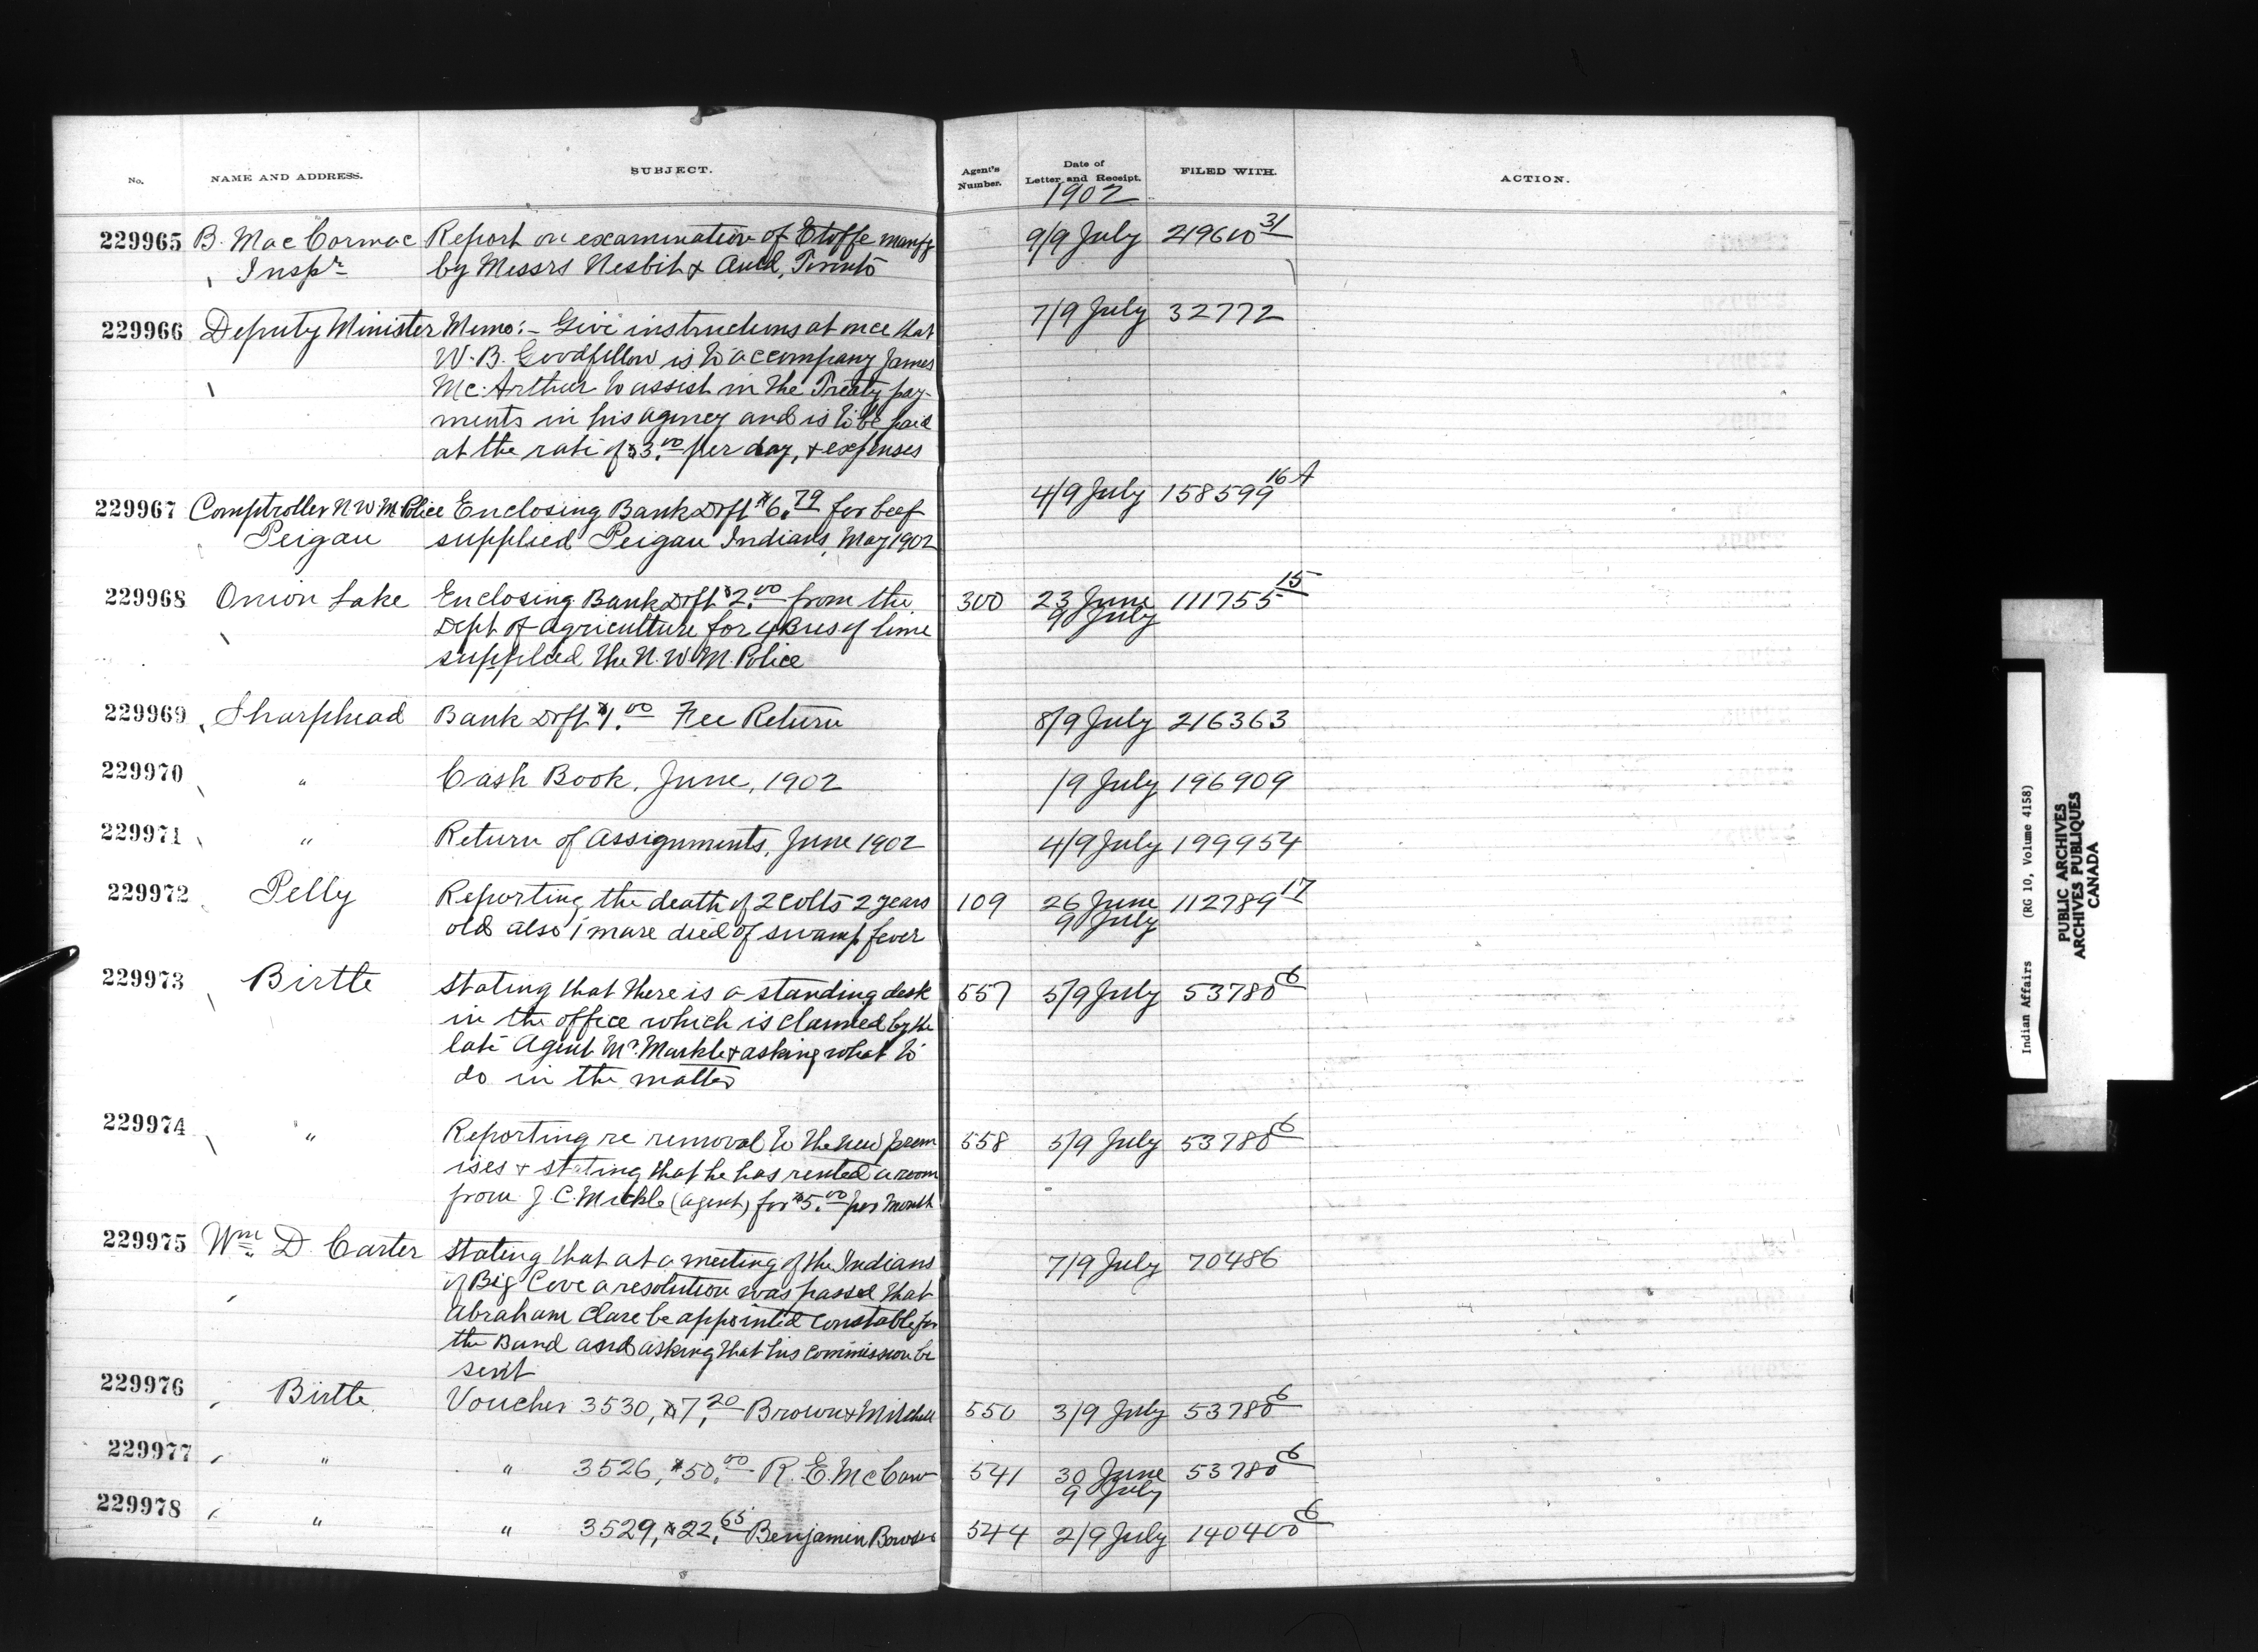 No. NAME AND ADDRESS. SUBJECT. Agent's Number. Date of Letter and Receipt. FILED WITH. ACTION.
1902
229965 B. MacCormac Report on examination of Etoffe manfg 9/9 July 219610 31
Inspr by Messrs Nesbit & Auld, Toronto
229966 Deputy Minister Memo:- Give instructions at once that 7/9 July 32772
W. B. Goodfellow is to accompany James
McArthur to assist in the Treaty pay-
ments in his agency and is to be paid
at the rate of $3.00 per day, & expenses
229967 Comptroller N W M Police Enclosing Bank Dft $6.79 for beef 4/9 July 158599 16A
Peigan supplied Peigan Indians, May 1902
229968 Onion Lake Enclosing Bank Dft $2.00 from the 300 23 June 111755 15
9 July
Dept of Agriculture for 4 Bus of lime
supplied the N. W. M. Police
229969 Sharphead Bank Dft $1.00 Fee Return 8/9 July 216363
229970 " Cash Book, June, 1902 /9 July 196909
229971 " Return of Assignments, June 1902 4/9 July 199954
229972 Pelly Reporting the death of 2 Colts 2 years 109 26 June 112789 17
9 July
old also 1 mare died of swamp fever
229973 Birtle Stating that there is a standing desk 557 5/9 July 53780 6
in the office which is claimed by the
late Agent Mr. Markle & asking what to
do in the matter
229974 " Reporting re removal to the new prem 558 5/9 July 53780 6
ises & stating that he has rented a room
from J. C. Mickle (agent) for $5.00 per month
229975 Wm. D. Carter Stating that at a meeting of the Indians 7/9 July 70486
of Big Cove a resolution was passed that
Abraham Clare be appointed Constable for
the Band and asking that his commission be
sent
229976 Birtle Voucher 3530, $7.20 Brown & Mitchell 550 3/9 July 53780 6
229977 " " 3526, $50.00 R. E. McCaw 541 30 June 53780 6
9 July
229978 " " 3529, $22.65 Benjamin 544 2/9 July 140400 6
Indian Affairs (RG 10, Volume 4158)
PUBLIC ARCHIVES
ARCHIVES PUBLIQUES
CANADA